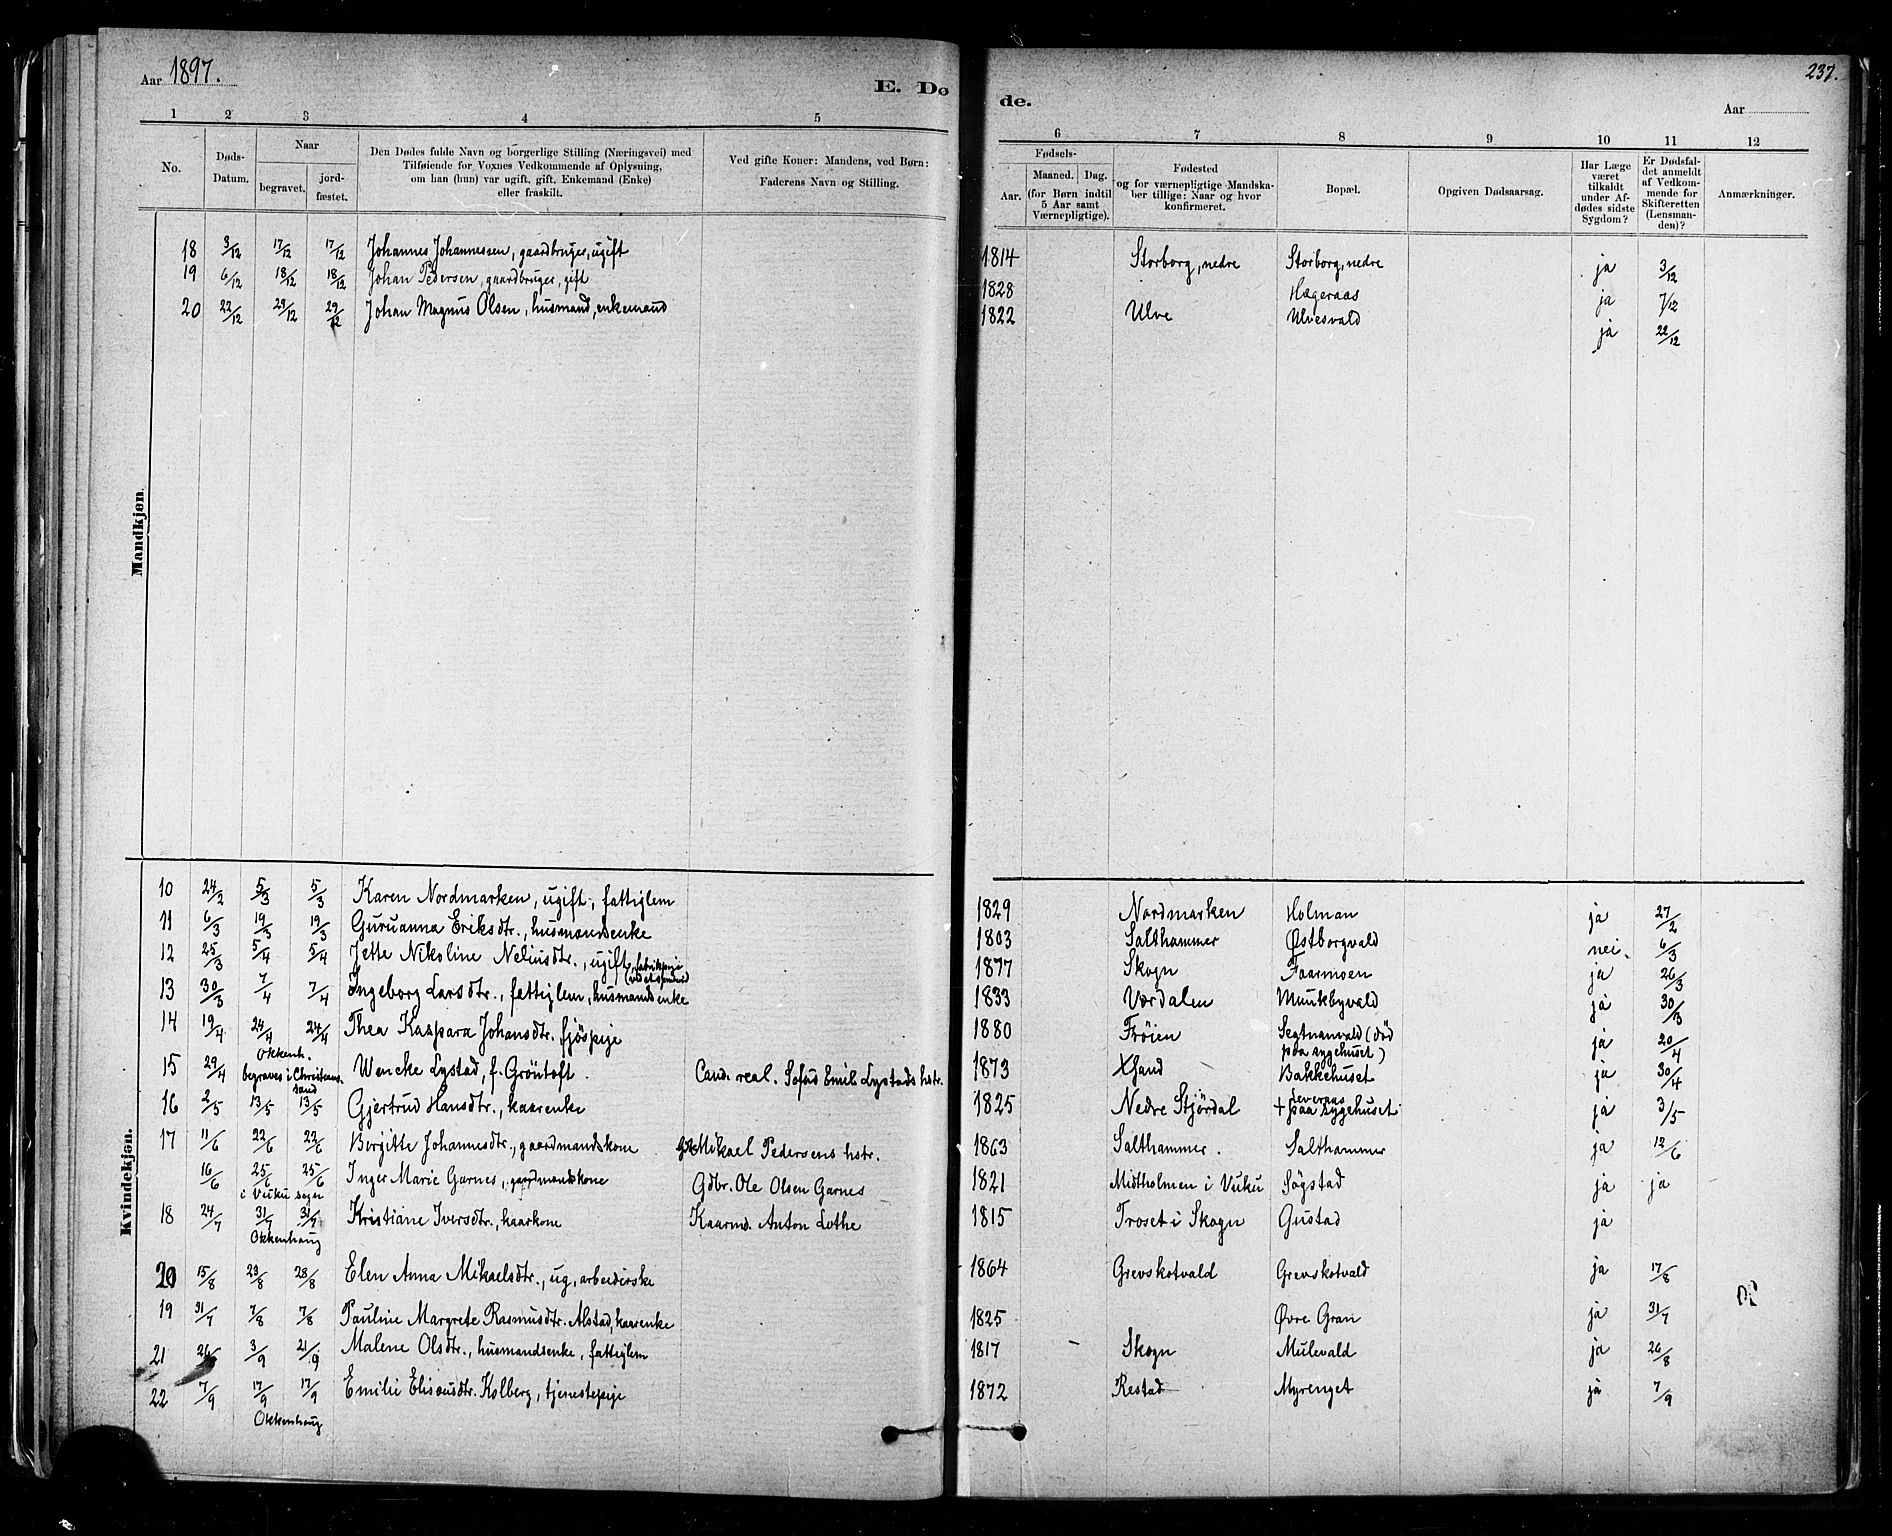 Aar 1897.
E. Dø
de.
237.
Aar
1 2 3 4 5 6 7 8 9 10 11 12
No.
Døds-Datum.
Naar
begravet. jordfæstet.
Den Dødes fulde Navn og borgerlige Stilling (Næringsvei) med
Tilføiende for Voxnes Vedkommende af Oplysning,
om han (hun) var ugift, gift, Enkemand (Enke)
eller fraskilt.
Ved gifte Koner: Mandens, ved Børn:
Faderens Navn og Stilling.
Fødsels-
Aar. Maaned. Dag.
(for Børn indtil
5 Aar samt
Værnepligtige).
Fødested
og for værnepligtige Mandska-
ber tillige: Naar og hvor
konfirmeret.
Bopæl.
Opgiven Dødsaarsag.
Har Læge
været
tilkaldt
under Af-
dødes sidste
Sygdom?
Er Dødsfal-
det anmeldt
af Vedkom-
mende for
Skifteretten
(Lensman-
den)?
Anmærkninger.
Mandkjøn.
18 3/12 17/12 17/12 Johannes Johannessen, gaardbruger, ugift 1814 Storborg, nedre Storborg, nedre ja 3/12
19 6/12 18/12 18/12 Johan Pedersen, gaardbruger, gift 1828 Hægeraas ja 7/12
20 22/12 29/12 29/12 Johan Magnus Olsen, husmand, enkemand 1822 Ulve Ulvesvald ja 22/12
Kvindekjøn.
10 24/2 5/3 5/3 Karen Nordmarken, ugift, fattiglem 1829 Nordmarken Holman ja 27/2
11 6/3 19/3 19/3 Guruanna Eriksdtr., husmandsenke 1803 Salthammer Østborgvald nei. 6/3
12 25/3 5/4 5/4 Jette Nikoline Neliusdtr., ugift, fabrikpige 1877 Skogn Faarmoen ja 26/3
13 30/3 7/4 7/4 Ingeborg Larsdtr., fattiglem, husmandsenke 1833 Værdalen Munkbyvald ja 30/3
14 19/4 24/4 24/4 Thea Kaspara Johansdtr. fjøspige 1880 Frøien Segtnanvald (død paa sygehuset) ja 20/4
Okkenh.
15 29/4 begraves i Christianssand Wencke Lystad, f. Gröntoft Cand. real. Sofus Emil Lystads hstr. 1873 Bakkehuset ja 30/4
16 2/5 13/5 13/5 Gjertrud Hansdtr., kaarenke 1825 Nedre Stjördal Leveraas + paa sygehuset ja 3/5
17 11/6 22/6 22/6 Bergitte Johannesdtr., gaardmandskone Mikael Pedersens hstr. 1863 Salthammer. Salthammer ja 12/6
16/6 25/6 25/6 Inger Marie Garnes, gaardmandskone Gdbr. Ole Olsen Garnes 1821 Midtholmen i Vuku Søgstad ja ja
i Vuku sogn
18 24/7 31/7 31/7 Kristiane Iversdtr., kaarkone Kaarmd. Anton Lothe 1815 Troset i Skogn Gustad ja
Okkenhaug
20 15/8 23/8 28/8 Elen Anna Mikaelsdtr., ug, arbeiderske 1864 Grevskotvald Grevskotvald ja 17/8
19 31/7 7/8 7/8 Pauline Margrete Rasmusdtr. Alstad, kaarenke 1825 Øvre Gran ja 31/7
21 26 3/9 21/9 Malene Olsdtr., husmandsenke, fattiglem 1817 Skogn Mulevald ja 26/8
22 7/9 17/9 17/9 Emilie Elisæusdtr. Kolberg, tjenestepige 1872 Restad Myrenget ja 7/9
Okkenhaug